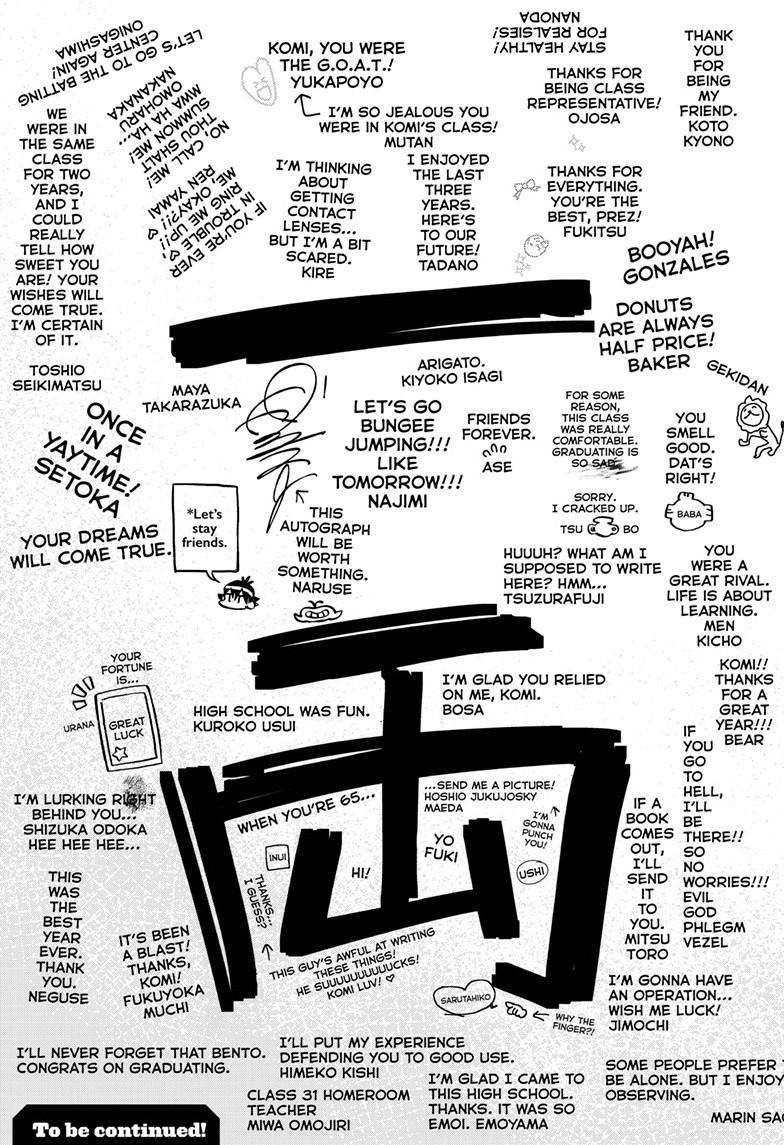 LET'S GO TO THE BATTING
CENTER AGAIN!
ONIGASHIMA
NO, CALL ME!
THOU SHALT
SUMMON ME!
MWA HA HA...
OMOHARU
NAKANAKA
KOMI, YOU WERE
THE G.O.A.T.!
YUKAPOYO
I'M SO JEALOUS YOU
WERE IN KOMI'S CLASS!
MUTAN
STAY HEALTHY!
FOR REALSIES!
NANODA
THANKS FOR
BEING CLASS
REPRESENTATIVE!
OJOSA
THANK
YOU
FOR
BEING
MY
FRIEND.
KOTO
KYONO
WE
WERE IN
THE SAME
CLASS
FOR TWO
YEARS,
AND I
COULD
REALLY
TELL HOW
SWEET YOU
ARE! YOUR
WISHES WILL
COME TRUE.
I'M CERTAIN
OF IT.
TOSHIO
SEIKIMATSU
IF YOU'RE EVER
IN TROUBLE,
RING ME UP!! ♡
ME, OKAY?!! ♡
REN YAMAI
I'M THINKING
ABOUT
GETTING
CONTACT
LENSES...
BUT I'M A BIT
SCARED.
KIRE
I ENJOYED
THE LAST
THREE
YEARS.
HERE'S
TO OUR
FUTURE!
TADANO
THANKS FOR
EVERYTHING.
YOU'RE THE
BEST, PREZ!
FUKITSU
BOOYAH!
GONZALES
DONUTS
ARE ALWAYS
HALF PRICE!
BAKER
GEKIDAN
MAYA
TAKARAZUKA
ARIGATO.
KIYOKO ISAGI
ONCE
IN A
YAYTIME!
SETOKA
LET'S GO
BUNGEE
JUMPING!!!
LIKE
TOMORROW!!!
NAJIMI
FRIENDS
FOREVER.
ASE
FOR SOME
REASON,
THIS CLASS
WAS REALLY
COMFORTABLE.
GRADUATING IS
SO SAD.
SORRY.
I CRACKED UP.
TSU BO
YOU
SMELL
GOOD.
DAT'S
RIGHT!
BABA
YOUR DREAMS
WILL COME TRUE.
*Let's
stay
friends.
THIS
AUTOGRAPH
WILL BE
WORTH
SOMETHING.
NARUSE
HUUUH? WHAT AM I
SUPPOSED TO WRITE
HERE? HMM...
TSUZURAFUJI
YOU
WERE A
GREAT RIVAL.
LIFE IS ABOUT
LEARNING.
MEN
KICHO
YOUR
FORTUNE
IS...
URANA
GREAT
LUCK
HIGH SCHOOL WAS FUN.
KUROKO USUI
I'M GLAD YOU RELIED
ON ME, KOMI.
BOSA
KOMI!!
THANKS
FOR A
GREAT
YEAR!!!
BEAR
IF
YOU
GO
TO
HELL,
I'LL
BE
THERE!!
SO
NO
WORRIES!!!
EVIL
GOD
PHLEGM
VEZEL
I'M LURKING RIGHT
BEHIND YOU...
SHIZUKA ODOKA
HEE HEE HEE...
WHEN YOU'RE 65...
...SEND ME A PICTURE!
HOSHIO JUKUJOSKY
MAEDA
I'M
GONNA
PUNCH
YOU!
USHI
YO
FUKI
HI!
INUI
THANKS...
I GUESS?
THIS GUY'S AWFUL AT WRITING
THESE THINGS!
HE SUUUUUUUUUCKS!
KOMI LUV! ♡
IF A
BOOK
COMES
OUT,
I'LL
SEND
IT
TO
YOU.
MITSU
TORO
THIS
WAS
THE
BEST
YEAR
EVER.
THANK
YOU.
NEGUSE
IT'S BEEN
A BLAST!
THANKS,
KOMI!
FUKUYOKA
MUCHI
SARUTAHIKO
WHY THE
FINGER?!
I'M GONNA HAVE
AN OPERATION...
WISH ME LUCK!
JIMOCHI
I'LL NEVER FORGET THAT BENTO.
CONGRATS ON GRADUATING.
I'LL PUT MY EXPERIENCE
DEFENDING YOU TO GOOD USE.
HIMEKO KISHI
CLASS 31 HOMEROOM
TEACHER
MIWA OMOJIRI
I'M GLAD I CAME TO
THIS HIGH SCHOOL.
THANKS. IT WAS SO
EMOI. EMOYAMA
SOME PEOPLE PREFER
BE ALONE. BUT I ENJOY
OBSERVING.
MARIN
To be continued!